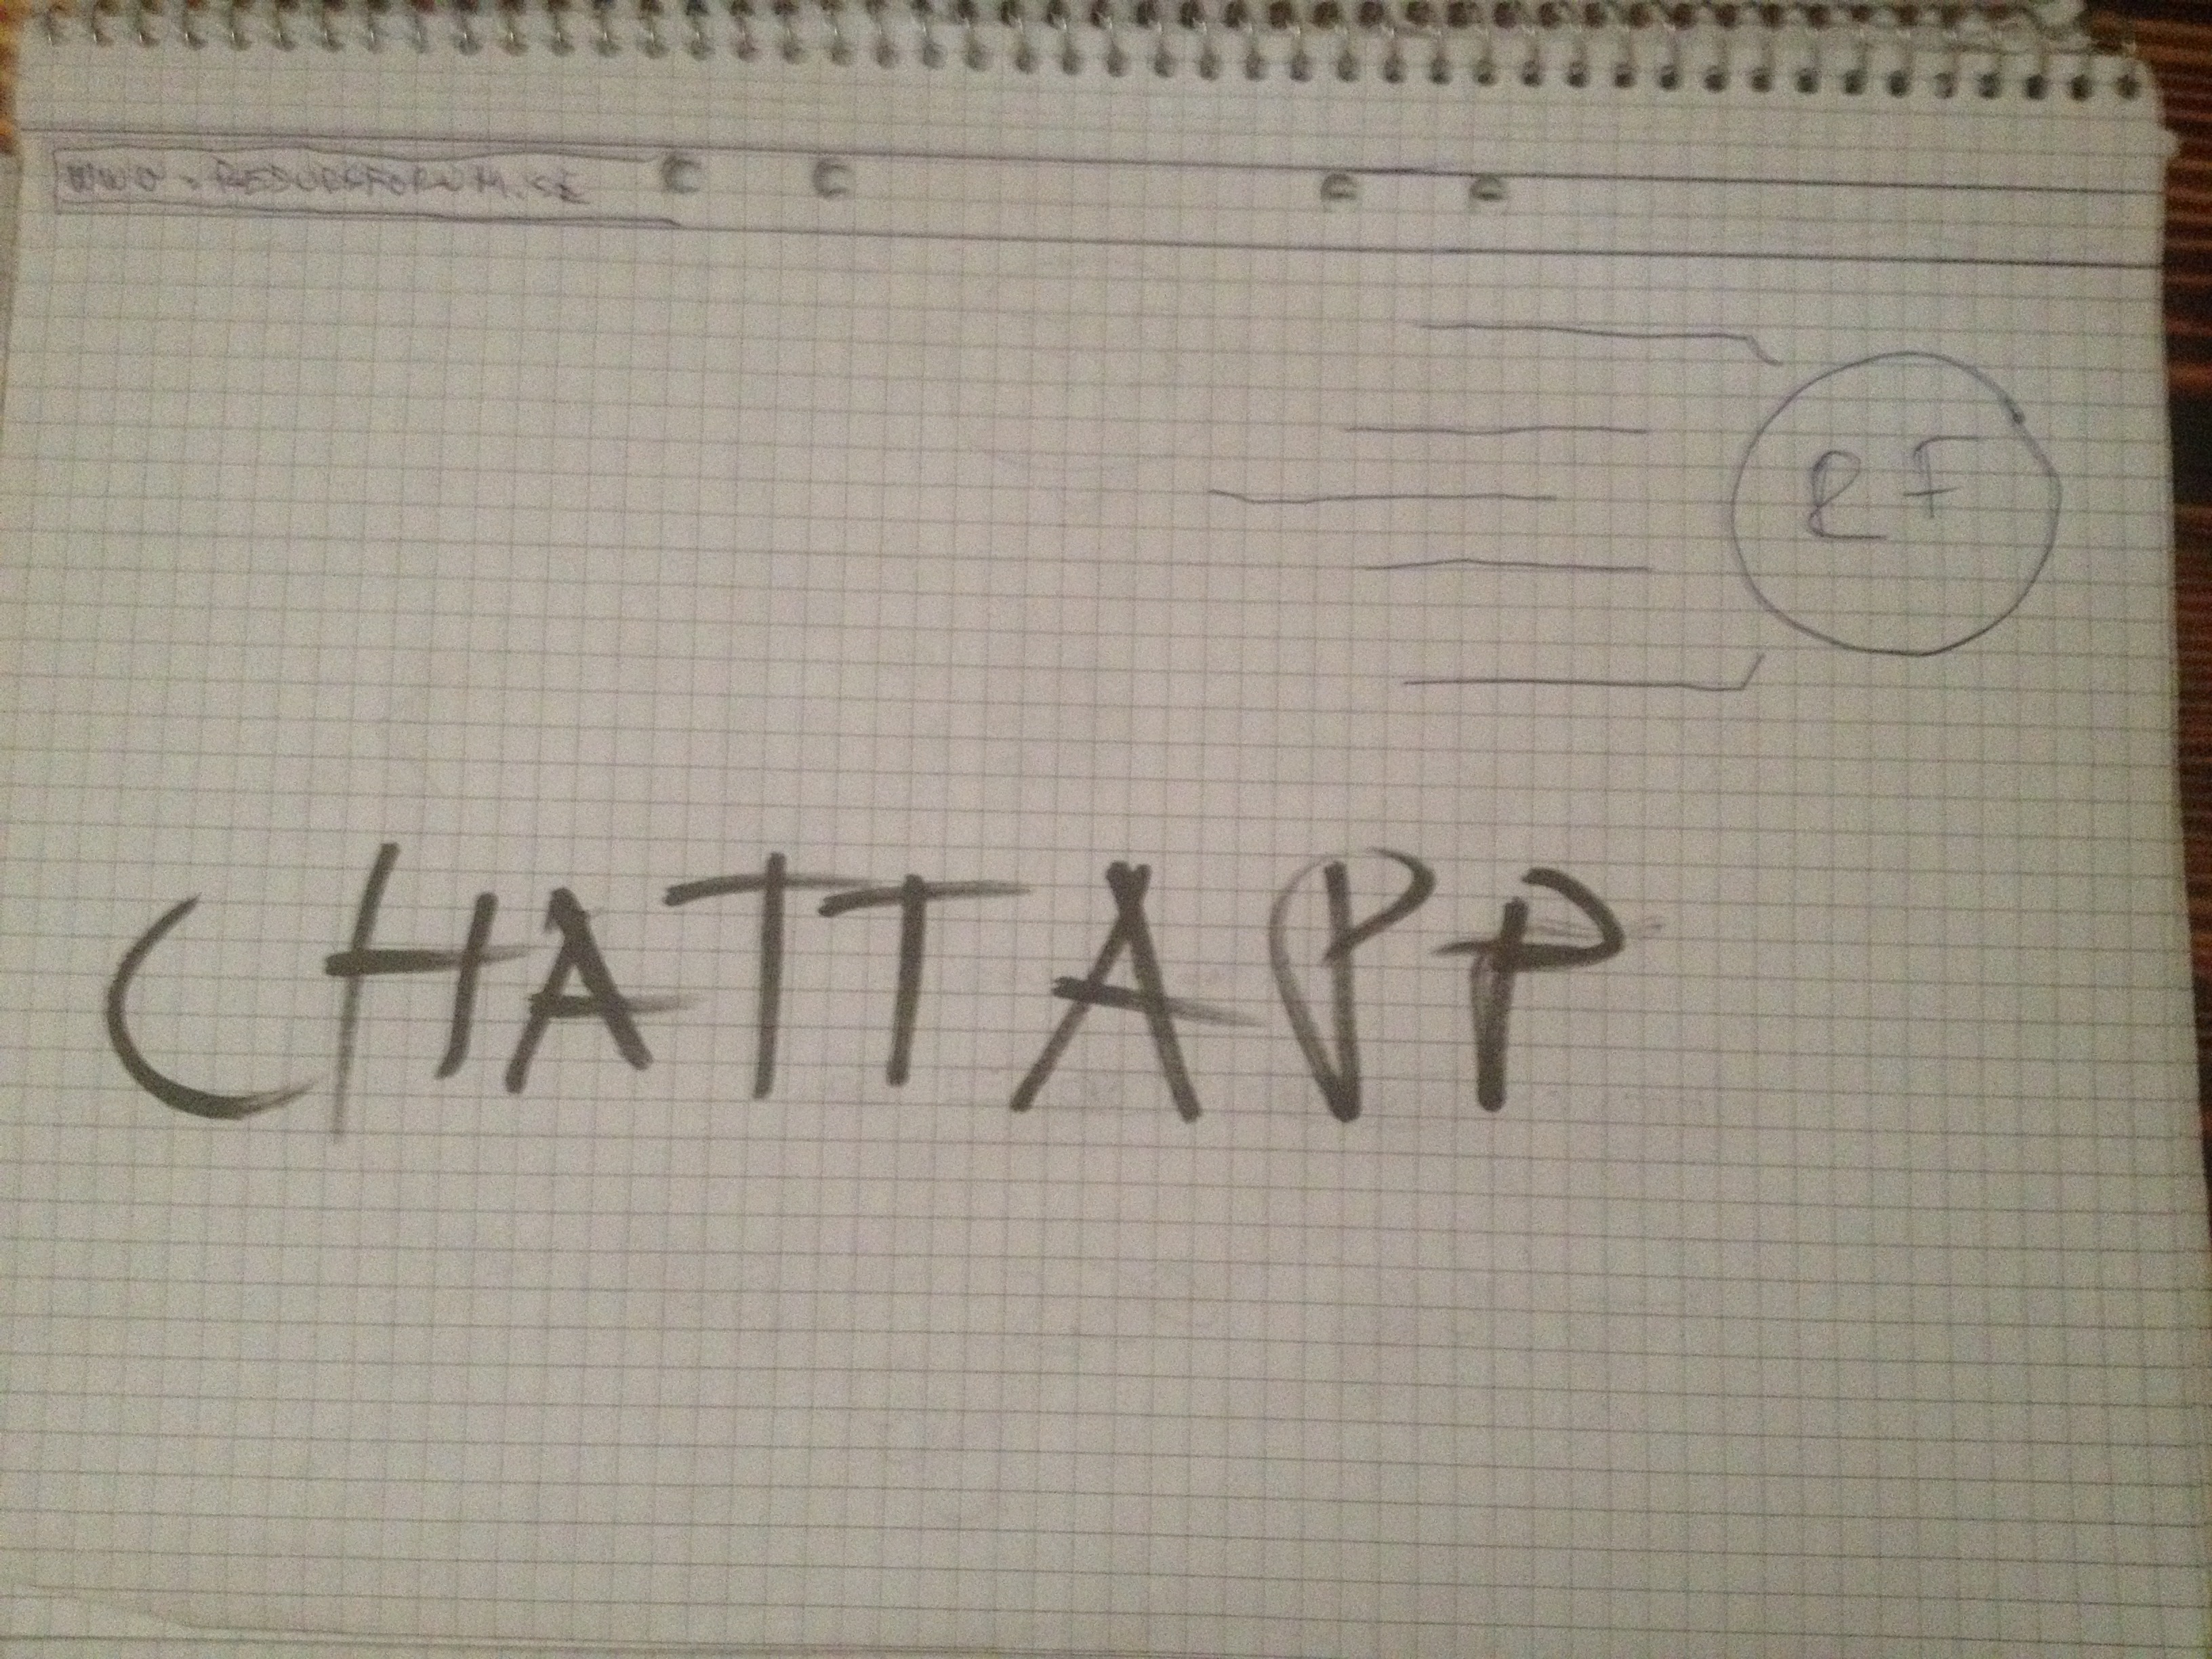 WWW.RESURSFORUM.SE
RF
CHATTAPP